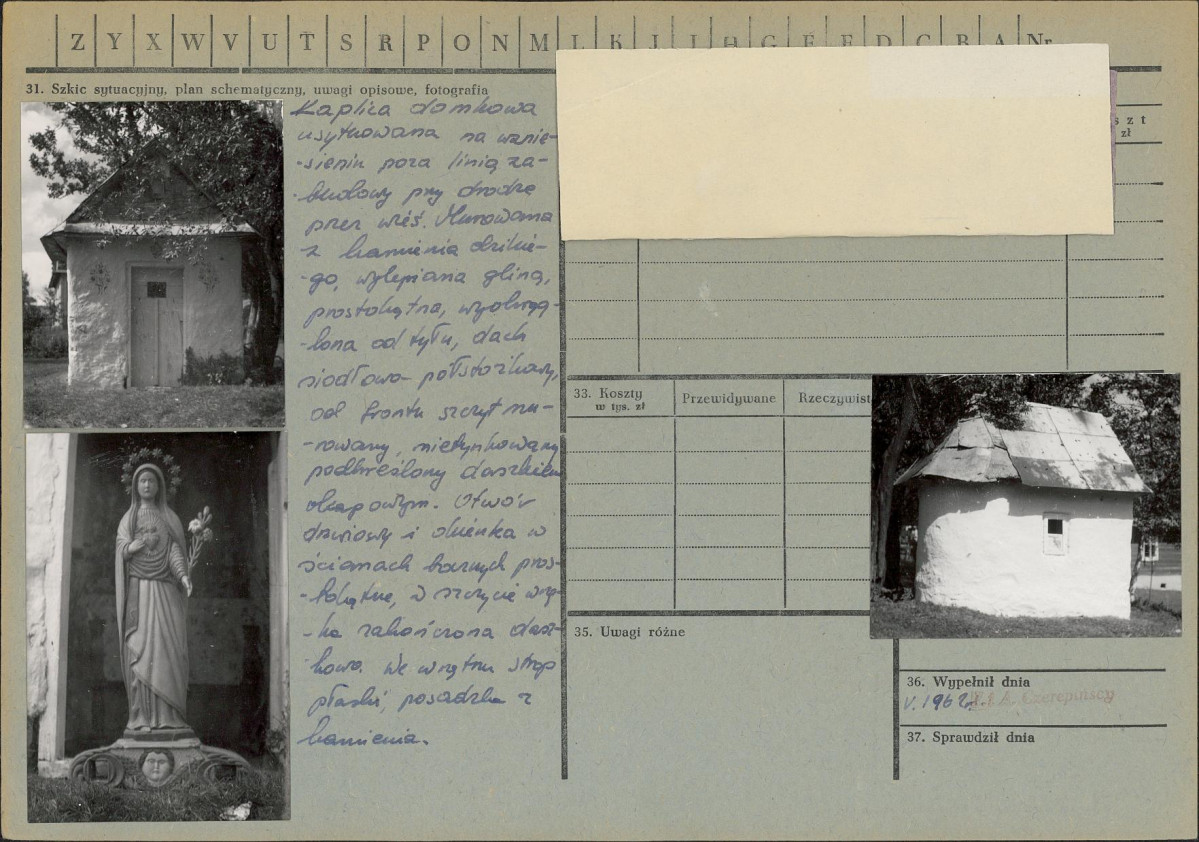 Z Y X W V U T S R P O N M L K J I H G F E D C B A Nr
31. Szkic sytuacyjny, plan schematyczny, uwagi opisowe, fotografia
Kaplica domkowa
usytuowana na wznie-
-sieniu poza linią za-
-budowy przy drodze
przez wieś. Murowana
z kamienia dzikie-
-go, wylepiana gliną,
prostokątna, wyokrąg-
-lona od tyłu, dach
siodłowo-półstożkowy,
od frontu szczyt mu-
-rowany, nietynkowany
podkreślony daszkiem
okapowym. Otwór
drzwiowy i okienka w
ścianach bocznych pros-
-tokątne, w szczycie wnę-
-ka zakończona dasz-
-kowo. We wnętrzu strop
płaski, posadzka z
kamienia.
szt
zł
33. Koszty
w tys. zł
Przewidywane
Rzeczywist
35. Uwagi różne
36. Wypełnił dnia
V. 1962 r. A. Czerepińscy
37. Sprawdził dnia